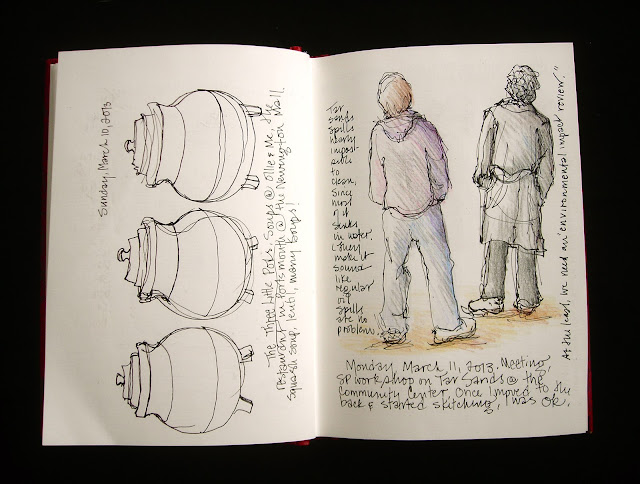 Sunday, March 10, 2013
The Three Little Pots. Soups @ Ollie & Me,
Restaurant in Portsmouth @ the Newington Mall.
Squash soup, lentil, many soups!
Tar
sands
spills
nearly
imposs
ible
to
clean,
since
most
of it
sinks
in water.
They
make it
sound
like
regular
oil
spills
are no
problem.
At the least, we need an "environmental impact review."
Monday, March 11, 2013. Meeting,
SP workshop on Tar Sands @ the
Community Center. Once I moved to the
back & started sketching, I was OK.